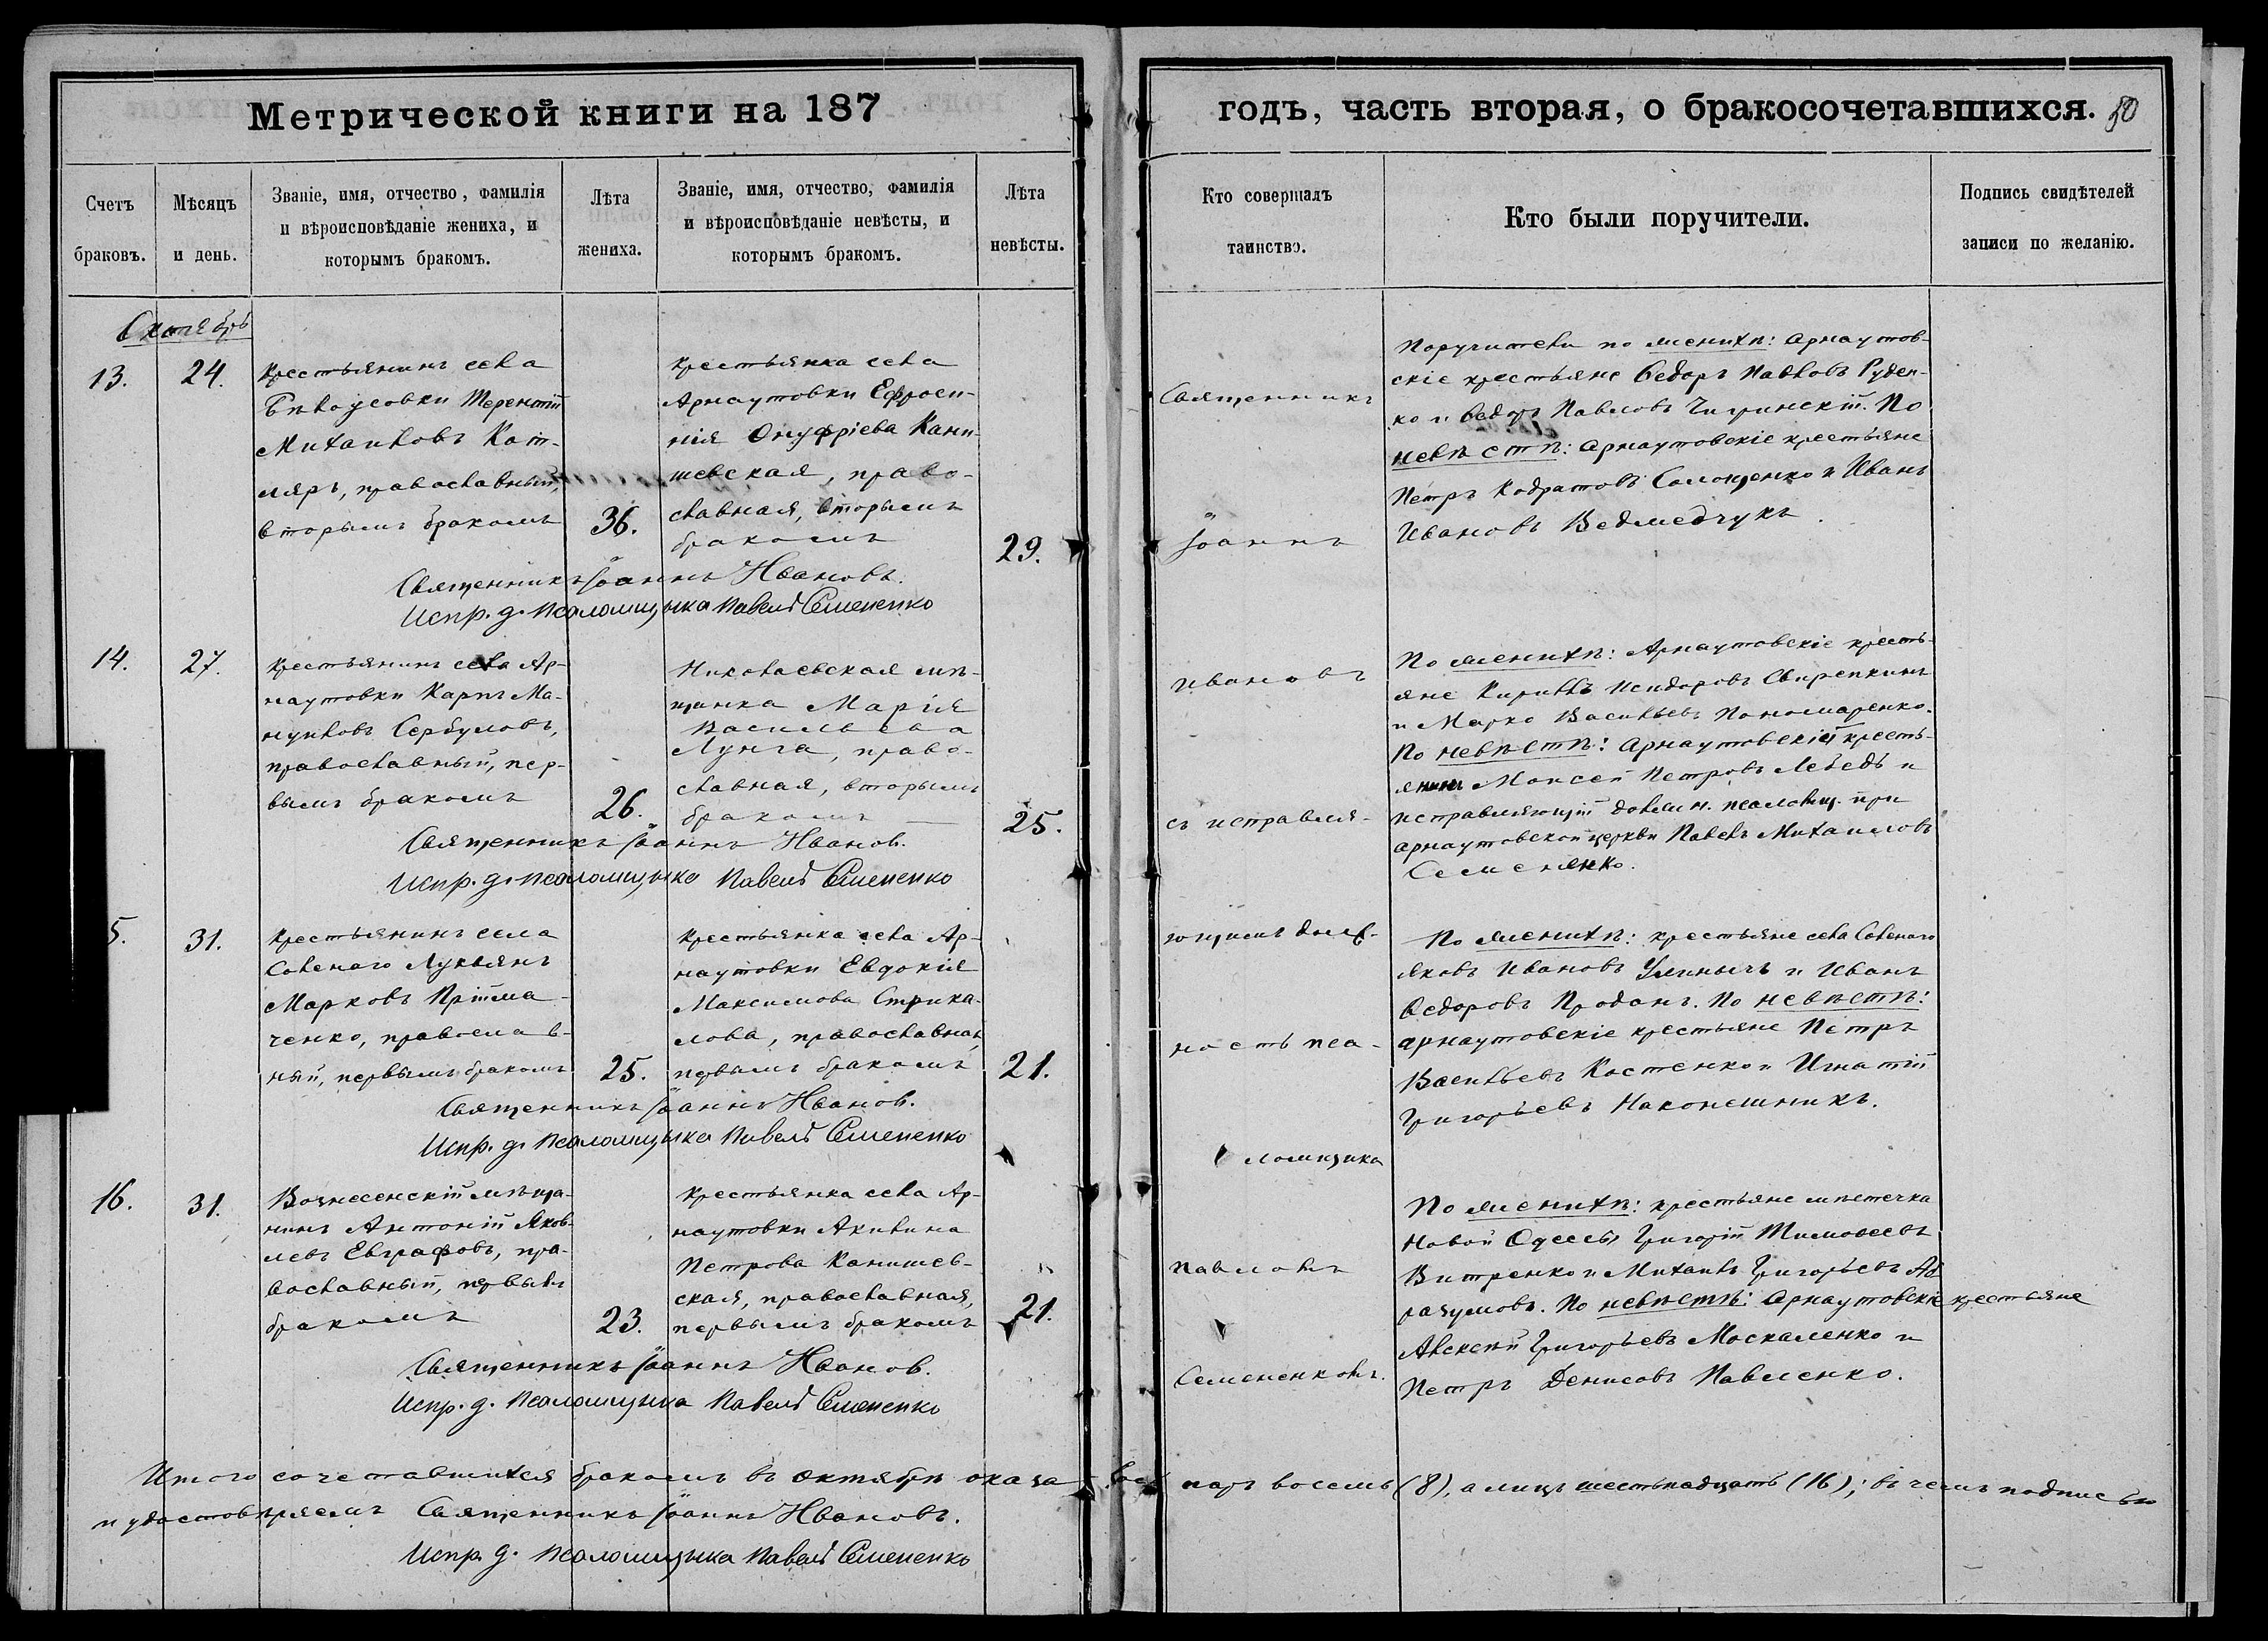 Метрической книги на 187
годъ, часть вторая, о бракосочетавшихся. 50
Счетъ
браковъ.
Мѣсяцъ
и день.
Званіе, имя, отчество, фамилія
и вѣроисповѣданіе жениха, и
которымъ бракомъ.
Лѣта
жениха.
Званіе, имя, отчество, фамилія
и вѣроисповѣданіе невѣсты, и
которымъ бракомъ.
Лѣта
невѣсты.
Кто совершалъ
таинство.
Кто были поручители.
Подпись свидѣтелей
записи по желанію.
Октябрь
13.
24.
Крестьянинъ села
Бѣлоусовки Терентій
Михаиловъ Кот-
ляръ, православный,
вторымъ бракомъ
36.
Крестьянка села
Арнаутовки Ефроси-
нія Онуфріева Кани-
шевская, право-
славная, вторымъ
бракомъ
29.
Священникъ Іоаннъ Ивановъ.
Испр. д. псаломщика Павелъ Семененко
Поручители по женихѣ: Арнаутов-
скіе крестьяне Ѳедоръ Павловъ Руден-
ко и Ѳедоръ Павловъ Чигринскій. По
невѣстѣ: Арнаутовскіе крестьяне
Петръ Кодратовъ Солощенко и Иванъ
Ивановъ Ведмедчукъ.
14.
27.
Крестьянинъ села Ар-
наутовки Карпъ Ма-
нуиловъ Сербуловъ,
православный, пер-
вымъ бракомъ
26.
Николаевская мѣ-
щанка Марія
Васильева
Лунга, право-
славная, вторымъ
бракомъ
25.
Священникъ Іоаннъ Иванов.
Испр. д. псаломщика Павелъ Семененко
По женихѣ: Арнаутовскіе кресть-
яне Кириллъ Исидоровъ Свирепкинъ
и Марко Васильевъ Пономаренко.
По невѣстѣ: Арнаутовскій кресть-
янинъ Моисей Петровъ Лебедь и
исправляющій должн. псаломщ. при
арнаутовской церкви Павелъ Михаиловъ
Семененко.
5.
31.
Крестьянинъ села
Соленаго Лукьянъ
Марковъ Прійма-
ченко, православ-
ный, первымъ бракомъ
25.
Крестьянка села Ар-
наутовки Евдокія
Максимова Стрика-
лова, православная,
первымъ бракомъ
21.
Священникъ Іоаннъ Иванов.
Испр. д. псаломщика Павелъ Семененко
По женихѣ: крестьяне села Соленаго
Яковъ Ивановъ и Иванъ
Ѳедоровъ Проданъ. По невѣстѣ:
арнаутовскіе крестьяне Петръ
Васильевъ Костенко и Игнатій
Григорьевъ Наконешникъ.
16.
31.
Вознесенскій мѣща-
нинъ Антоній Яков-
левъ Евграфовъ, пра-
вославный, первымъ
бракомъ
23.
Крестьянка села Ар-
наутовки Акилина
Петрова Канишев-
ская, православная,
первымъ бракомъ
21.
Священникъ Іоаннъ Иванов.
Испр. д. псаломщика Павелъ Семененко
По женихѣ: крестьяне мѣстечка
Новой Одессы Григорій Тимоѳеевъ
Витренко и Михаилъ Григорьевъ Аб-
разумовъ. По невѣстѣ: Арнаутовскіе крестьяне
Алексѣй Григорьевъ Москаленко и
Петръ Денисовъ Павленко.
Священникъ
Іоаннъ
Ивановъ
съ исправля-
ющимъ долж-
ность пса-
ломщика
Павломъ
Семененкомъ.
Итого сочетавшихся бракомъ въ октябрѣ оказалось паръ восемь (8), а лицъ шестьнадцать (16); въ чемъ подписью
и удостовѣряемъ Священникъ Іоаннъ Ивановъ.
Испр. д. псаломщика Павелъ Семененко